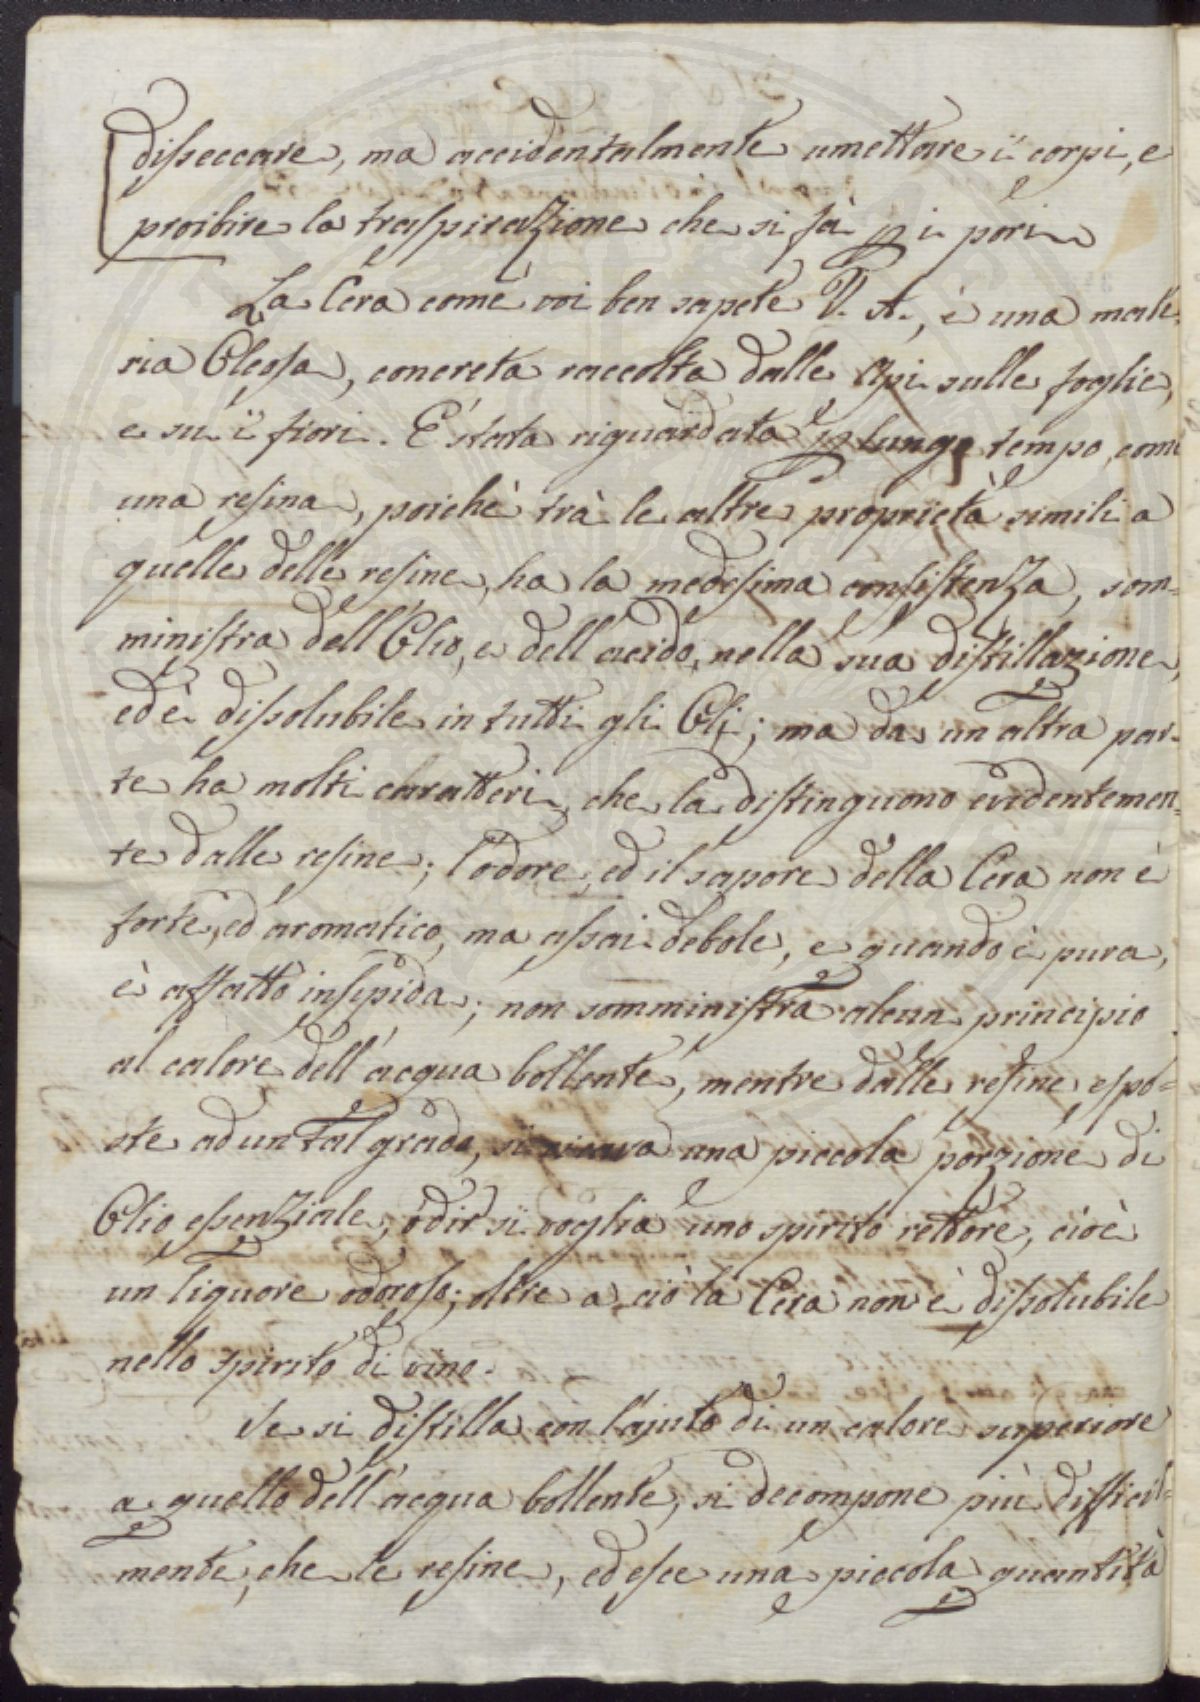 disseccare, ma accidentalmente umettare i corpi, e
proibire la traspirazione che si fà p i pori
La Cera come voi ben sapete V. A., è una mate-
ria Oleosa, concreta raccolta dalle Api sulle foglie,
e su i fiori. É stata riguardata p lungo tempo, come
una resina, poichè trà le altre proprietà simili a
quelle delle resine, ha la medesima consistenza, som-
ministra dell'Olio, e dell'acido, nella sua distillazione,
ed è dissolubile in tutti gli Olj; ma da un altra par-
te ha molti caratteri, che la distinguono evidentemen-
te dalle resine; l'odore, ed il sapore della Cera non è
forte, ed aromatico, ma assai debole, e quando è pura,
è affatto insipida; non somministra alcun principio
al calore dell'acqua bollente, mentre dalle resine, espo-
ste ad un tal grado, si ricava una piccola porzione di
Olio essenziale, ò dir si voglia uno spirito rettore, cioè
un liquore odoroso; oltre a ciò la Cera non è dissolubile
nello spirito di vino.
Se si distilla con l'ajuto di un calore superiore
a quello dell'acqua bollente, si decompone più difficil-
mente, che le resine, ed esce una piccola quantità